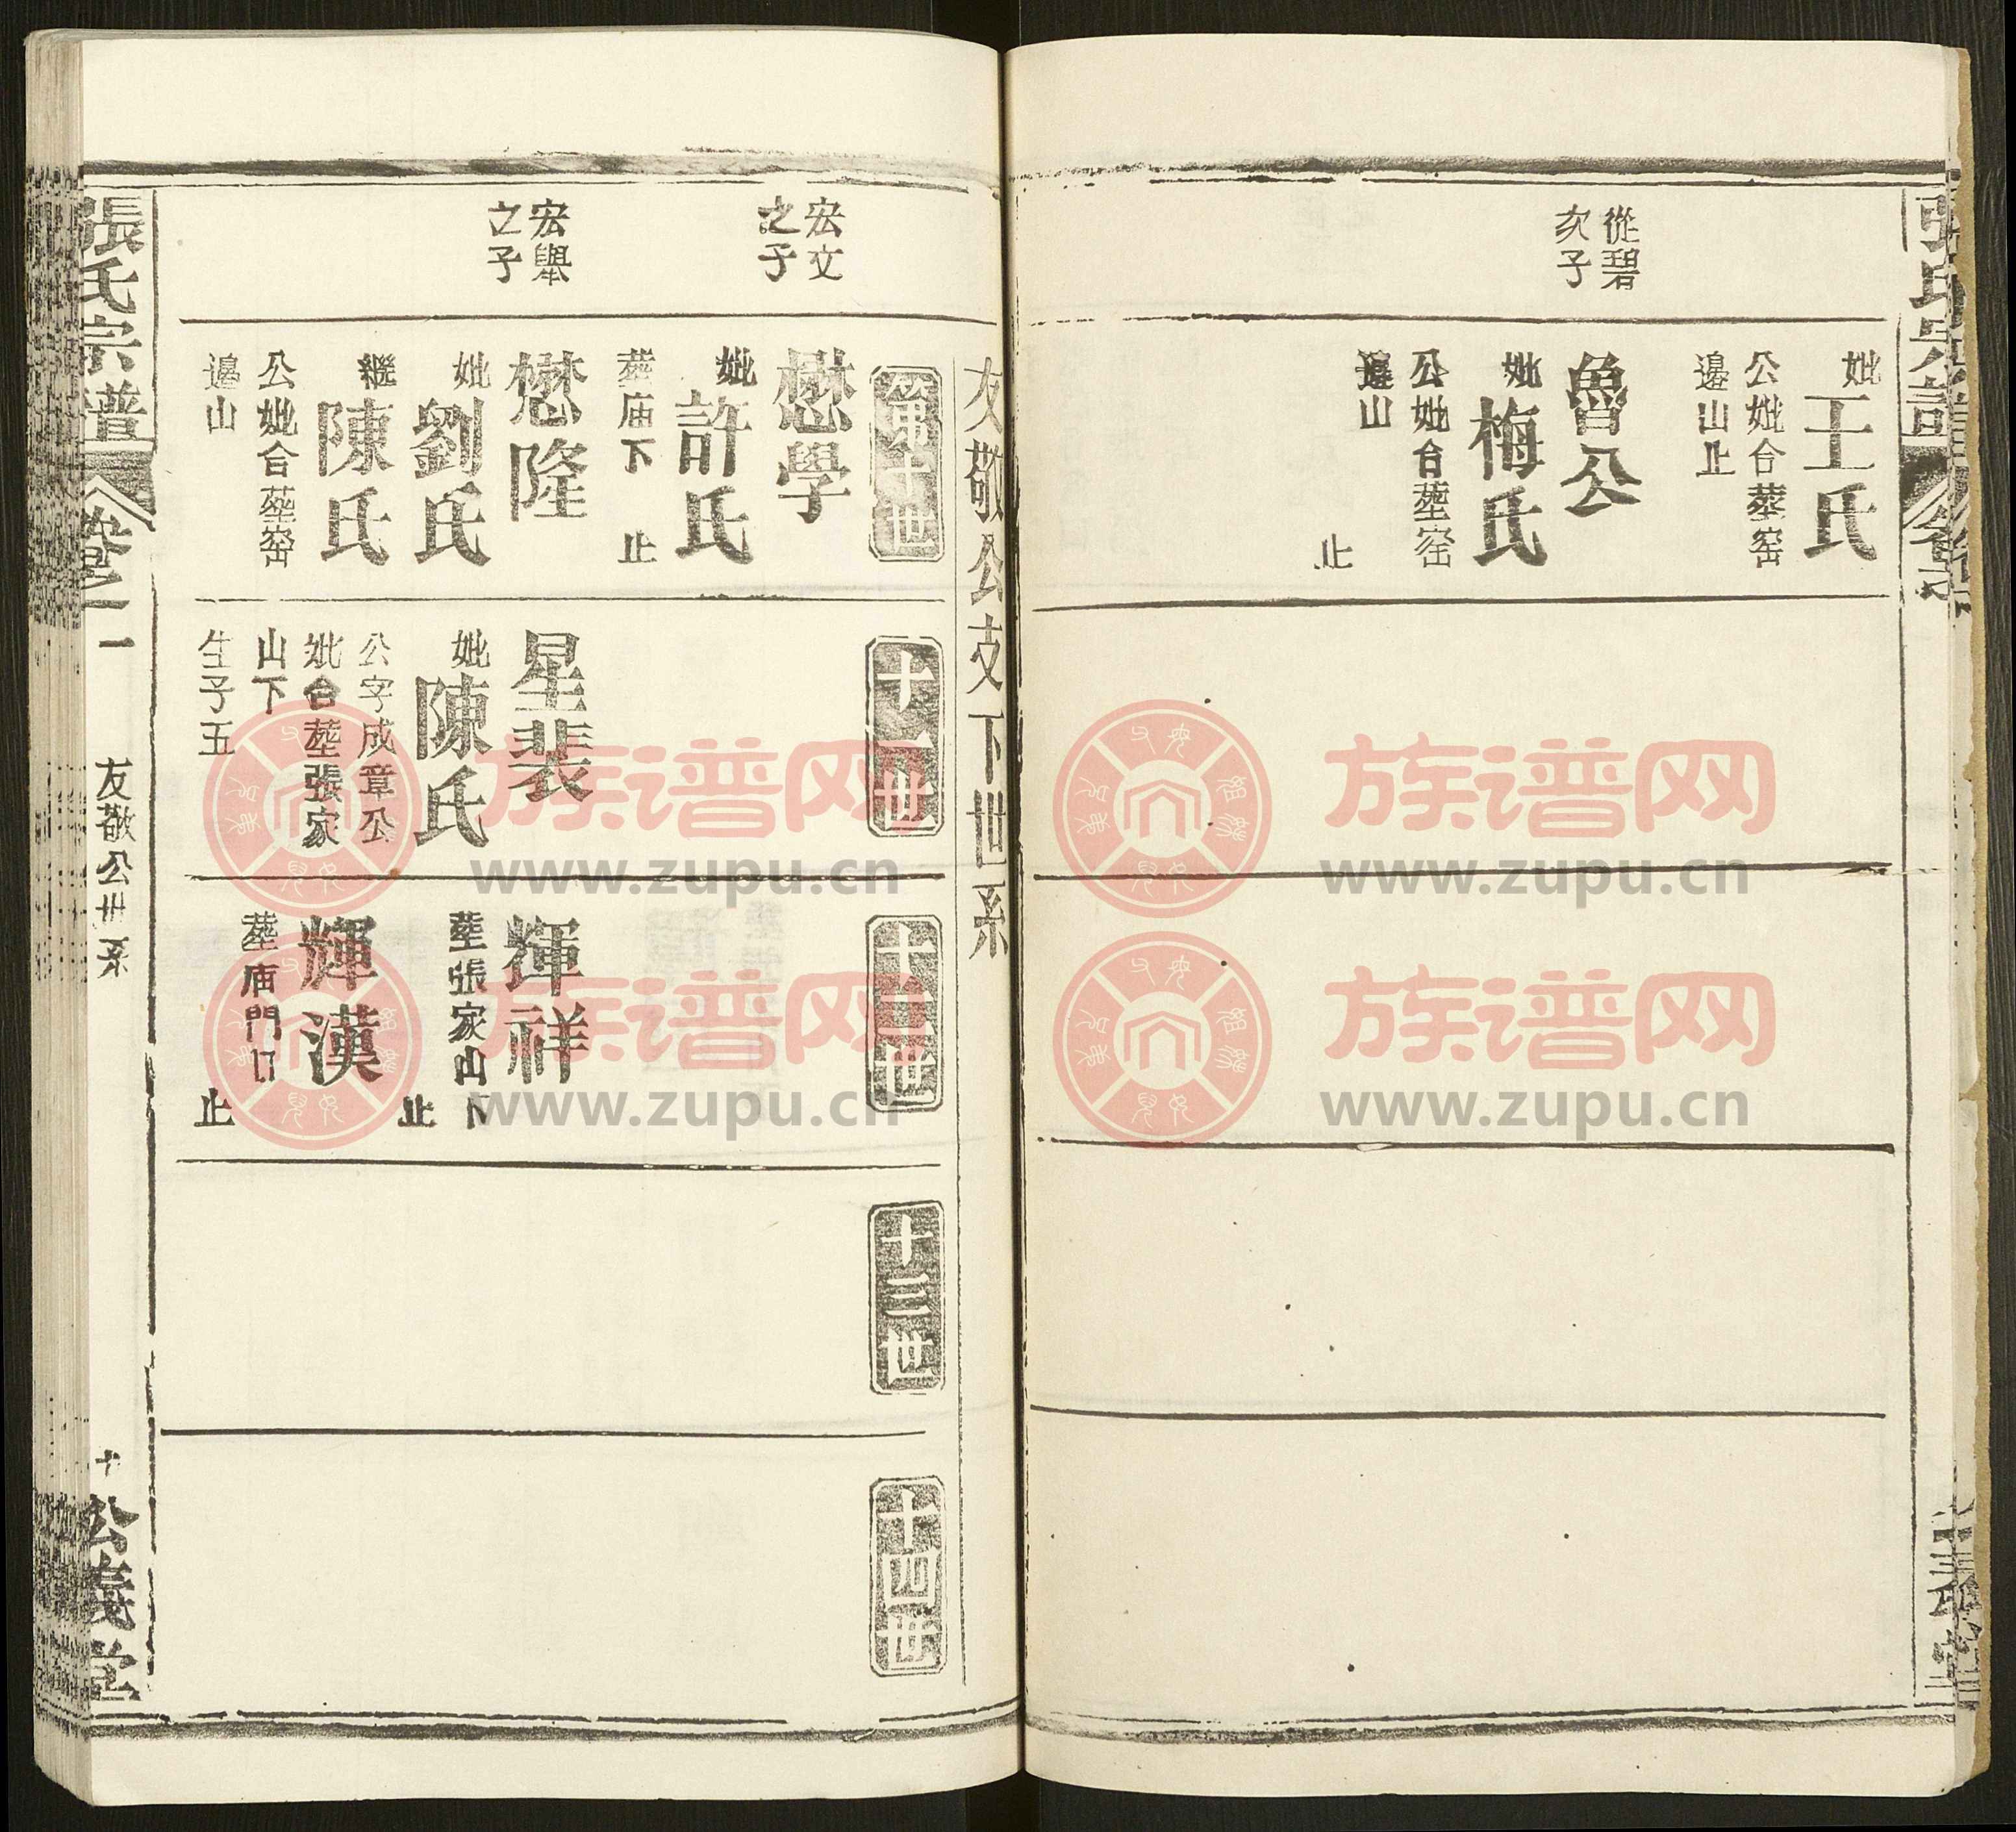 張氏宗譜
妣王氏
公妣合塟窑
邉山止
從碧
次子
魯公
妣梅氏
公妣合塟窑
邉山
止
友敬公支下世系
第十世
十一世
十二世
十三世
十四世
宏文
之子
懋學
妣許氏
塟庙下 止
宏舉
之子
懋隆
妣劉氏
繼陳氏
公妣合塟窑
邉山
星裴
妣陳氏
公字成章公
妣合塟張家
山下
生子五
輝祥
塟張家山下
止
輝漢
塟庙門口
止
張氏宗譜
卷之一
友敬公世系
十
公義堂
族谱网
www.zupu.cn
族谱网
www.zupu.cn
族谱网
www.zupu.cn
族谱网
www.zupu.cn